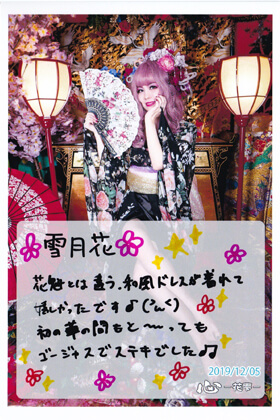 雪月花
花魁とは違う、和風ドレスが着れて
嬉しかったです♪('ん')
初の華の間もと〜っても
ゴージャスでステキでした♫
2019/12/05
心-花雫-